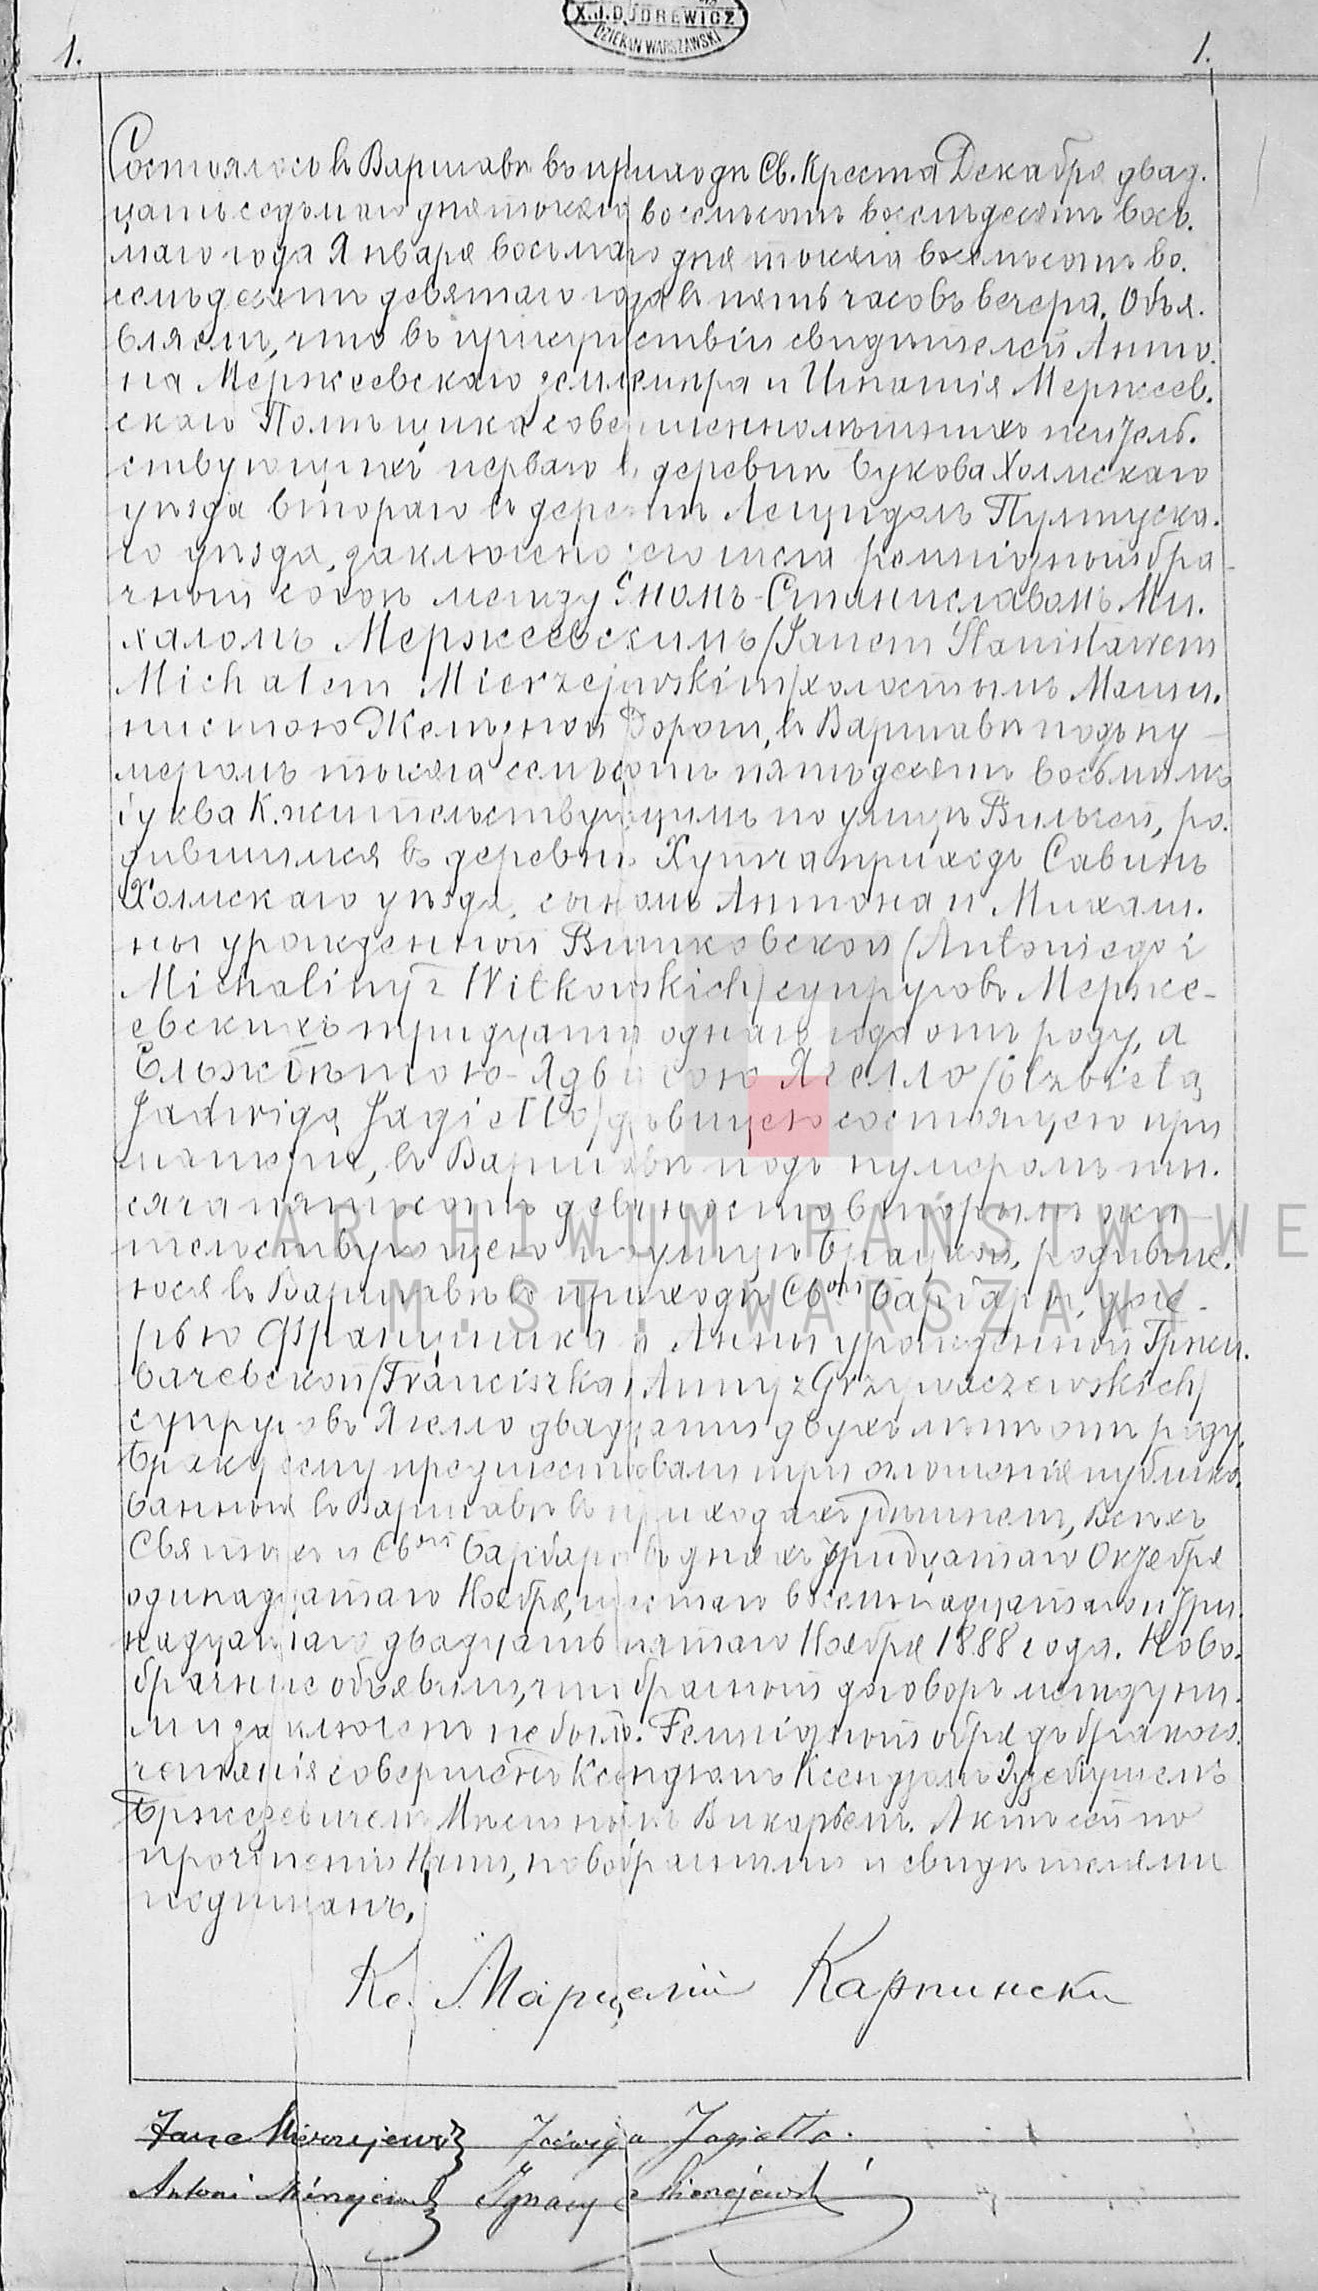 X.J.DUDREWICZ
DZIEKAN WARSZAWSKI
1. 1.
Состоялось въ Варшавѣ въ приходѣ Св. Креста Декабря двад.
цать седьмаго дня тысяча восемьсотъ восемьдесятъ вось.
маго года Января восьмаго дня тысяча восемьсотъ во.
семьдесятъ девятаго года въ пять часовъ вечера. Объя.
вляемъ, что въ присутствіи свидѣтелей Анто.
на Мержеевскаго землемѣра и Игнатія Мержеев.
скаго Помѣщика совершеннолѣтнихъ жительс.
ствующихъ перваго въ деревнѣ Букова Холмскаго
уѣзда втораго въ деревнѣ Пултуска.
го уѣзда, заключено сего числа религіозный бра-
чный союзъ между Яномъ-Станиславомъ Ми.
халомъ Мержеевскимъ /Janem Stanisławem
Michałem Mierzejewskim/ холостымъ Маши.
нистою Желѣзной Дороги, въ Варшавѣ подъ ну-
меромъ тысяча семьсотъ пятьдесятъ восьмымъ
буква К. жительствующимъ по улицѣ Вильчей, ро.
дившимся въ деревнѣ Хутча приходѣ Савинъ
Холмскаго уѣзда, сыномъ Антона и Михали.
ны урожденной Витковской /Antoniego i
Michaliny z Witkowskich/ супруговъ Мерже-
евскихъ тридцати одного года отъ роду, а
Ельжбѣтою-Ядвигою Ягелло /Elżbietą
Jadwigą Jagiełło/ дѣвицею состоящею при
матери, въ Варшавѣ подъ нумеромъ ты.
сяча пятьсотъ девяносто вторымъ жи-
тельствующею по улицѣ Брацкой, родивше.
юся въ Варшавѣ въ приходѣ Св<sup>ой</sup> Варвары, доче-
рью Францишка и Анны урожденной Гржи.
вачевской /Franciszka i Anny z Grzywaczewskich/
супруговъ Ягелло двадцати двухъ лѣтъ отъ роду.
Браку сему предшествовали три оглашенія публико.
ванныя въ Варшавѣ въ приходахъ здѣшнемъ, Всѣхъ
Святыхъ и Св<sup>ой</sup> Варвары въ дняхъ тридцатаго Октября
одинадцатаго Ноября, восемнадцатаго и
двадцать пятаго Ноября 1888 года. Ново.
брачные объявили, что брачный договоръ между ни.
ми заключенъ не былъ. Религіозный обрядъ бракосо.
четанія совершенъ Ксендзомъ Ксендзомъ
Бржезевичемъ Мѣстнымъ Викарьемъ. Актъ сей по
прочтеніи Нами, новобрачными и свидѣтелями
подписанъ.
Кс. Марцелій Карпински
Jan Mierzejewski Jadwiga Jagiełło.
Antoni Mierzejewski Ignacy Mierzejewski
ARCHIWUM PAŃSTWOWE
M.ST. WARSZAWY